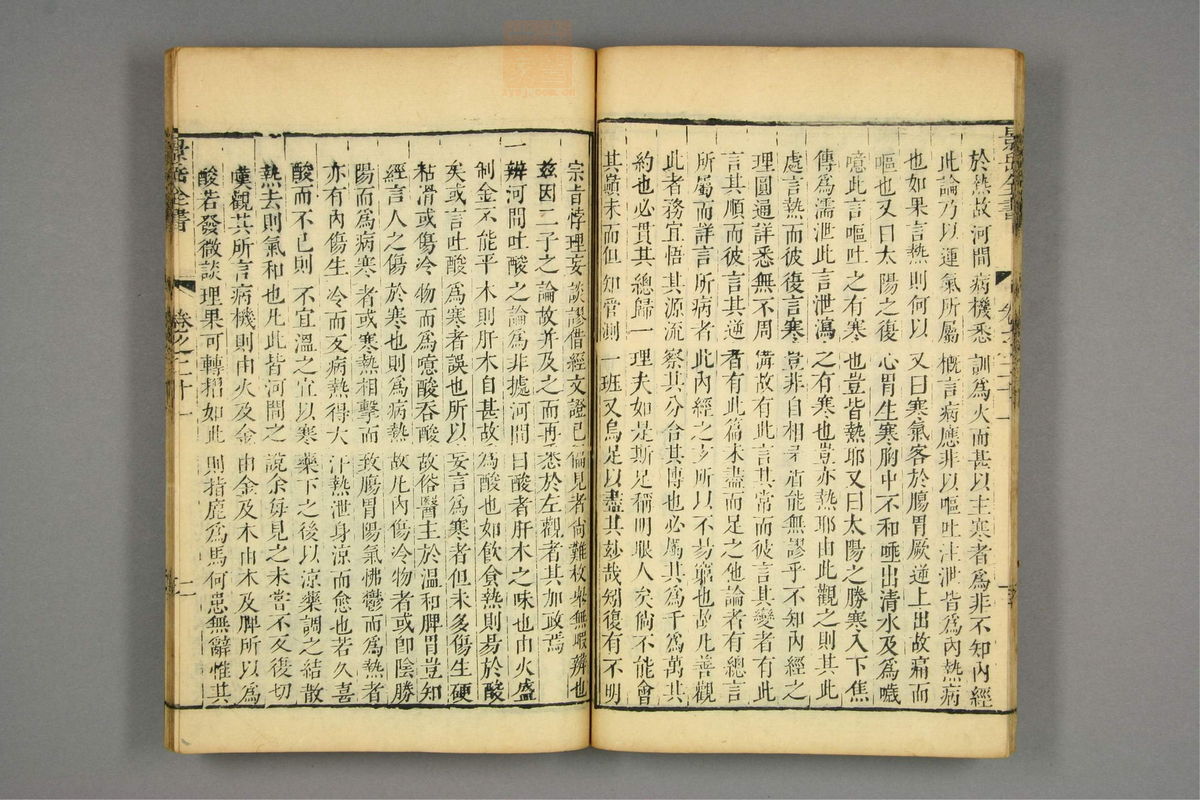 於熱故河間病機悉訓爲火而甚以主寒者爲非不知内經
此論乃以運氣所屬概言病應非以嘔吐注泄皆爲内熱病
也如果言熱則何以又曰寒氣客於腸胃厥逆上出故痛而
嘔也又曰太陽之復心胃生寒胸中不和唾出清水及爲噦
噫此言嘔吐之有寒也豈皆熱耶又曰太陽之勝寒入下焦
傳爲濡泄此言泄瀉之有寒也豈亦熱耶由此觀之則其此
處言熱而彼復言寒豈非自相矛盾能無謬乎不知内經之
理圓通詳悉無不周備故有此言其常而彼言其變者有此
言其順而彼言其逆者有此篇未盡而足之他論者有總言
所屬而詳言所病者此内經之玅所以不易窮也故凡善觀
此者務宜悟其源流察其分合其博也必屬其爲千爲萬其
約也必貫其總歸一理夫如是斯足稱明眼人矣倘不能會
其巔末而但知管測一班又烏足以盡其玅哉矧復有不明
宗旨悖理妄談謬借經文證已偏見者尚難枚舉無暇辨也
兹因二子之論故并及之而再悉於左觀者其加政焉
一辨河間吐酸之論爲非據河間曰酸者肝木之味也由火盛
制金不能平木則肝木自甚故爲酸也如飲食熱則易於酸
矣或言吐酸爲寒者誤也所以妄言爲寒者但未多傷生硬
粘滑或傷冷物而爲噫酸吞酸故俗醫主於温和脾胃豈知
經言人之傷於寒也則爲病熱故凡内傷冷物者或卽陰勝
陽而爲病寒者或寒熱相擊而致腸胃陽氣怫鬱而爲熱者
亦有内傷生冷而反病熱得大汗熱泄身涼而愈也若久喜
酸而不已則不宜温之宜以寒藥下之後以涼藥調之結散
熱去則氣和也凡此皆河間之說余每見之未嘗不反復切
嘆觀其所言病機則由火及金由金及木由木及脾所以爲
酸若發微談理果可轉摺如此則指鹿爲馬何患無辭惟其
景岳全書
卷之二十一
二
景岳全書
卷之二十一